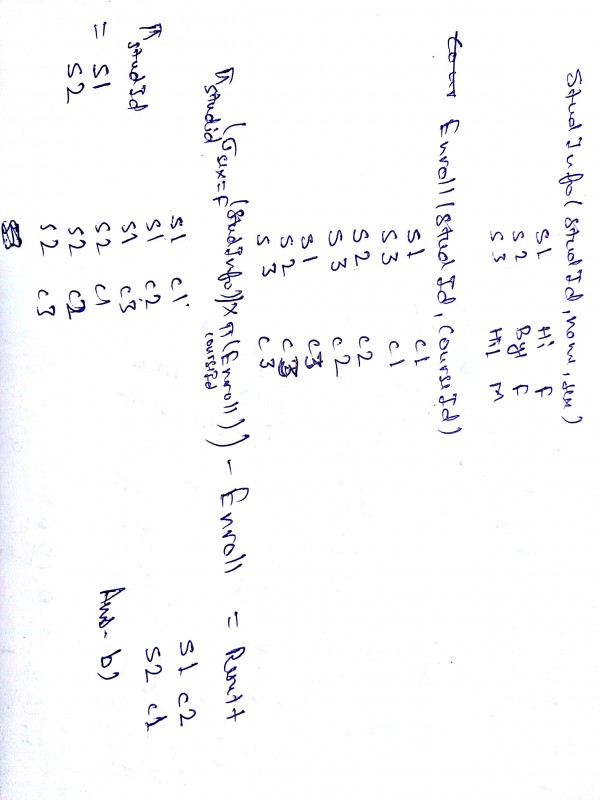 StudInfo(studId, name, sex)
S1 Hi F
S2 By F
S3 Hil M
Enroll(studId, courseId)
S1 C1
S3 C1
S2 C2
S3 C2
S1 C3
S2 C3
S3 C3
π studid (σ sex=F (studInfo)) × π courseId (Enroll)) – Enroll = Result
S1 C1
S1 C2 S1 C2
S1 C3 S2 C1
S2 C1
S2 C2
S2 C3
π studId
= S1
S2
Ans- b)